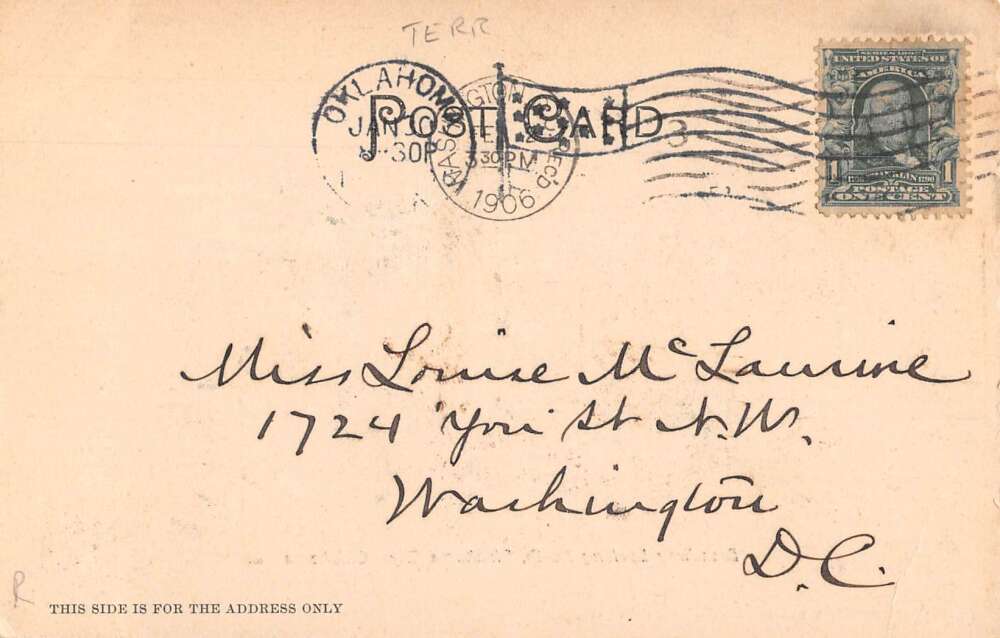 TERR
POST CARD
OKLAHOMA
JAN 30
30P
WASHINGTON
REC'D
3 30 PM
1906
3
SERIES 1902
UNITED STATES OF
AMERICA
1 FRANKLIN 1
POSTAGE
ONE CENT
Miss Louise McLaurine
1724 You St N.W.
Washington
D.C.
R
THIS SIDE IS FOR THE ADDRESS ONLY